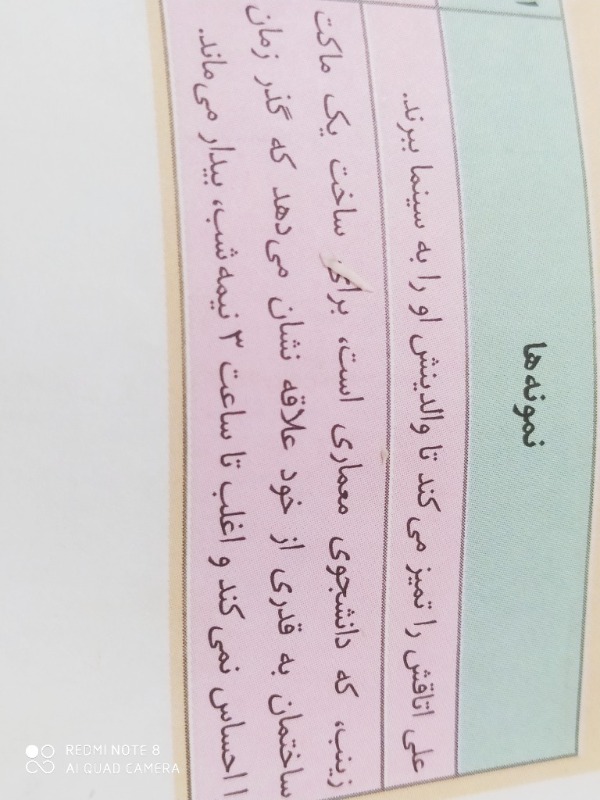 نمونه‌ها
علی اتاقش را تمیز می‌کند تا والدینش او را به سینما ببرند.
زینب، که دانشجوی معماری است، برای ساخت یک ماکت
ساختمان به قدری از خود علاقه نشان می‌دهد که گذر زمان
را احساس نمی‌کند و اغلب تا ساعت ۳ نیمه شب، بیدار می‌ماند.
REDMI NOTE 8
AI QUAD CAMERA